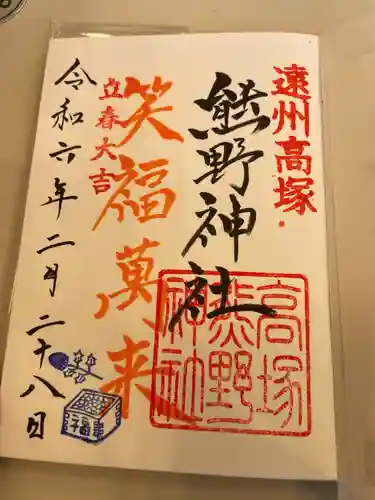 遠州高塚
熊野神社
高塚
熊野
神社
笑福萬来
立春大吉
令和六年二月二十八日
福